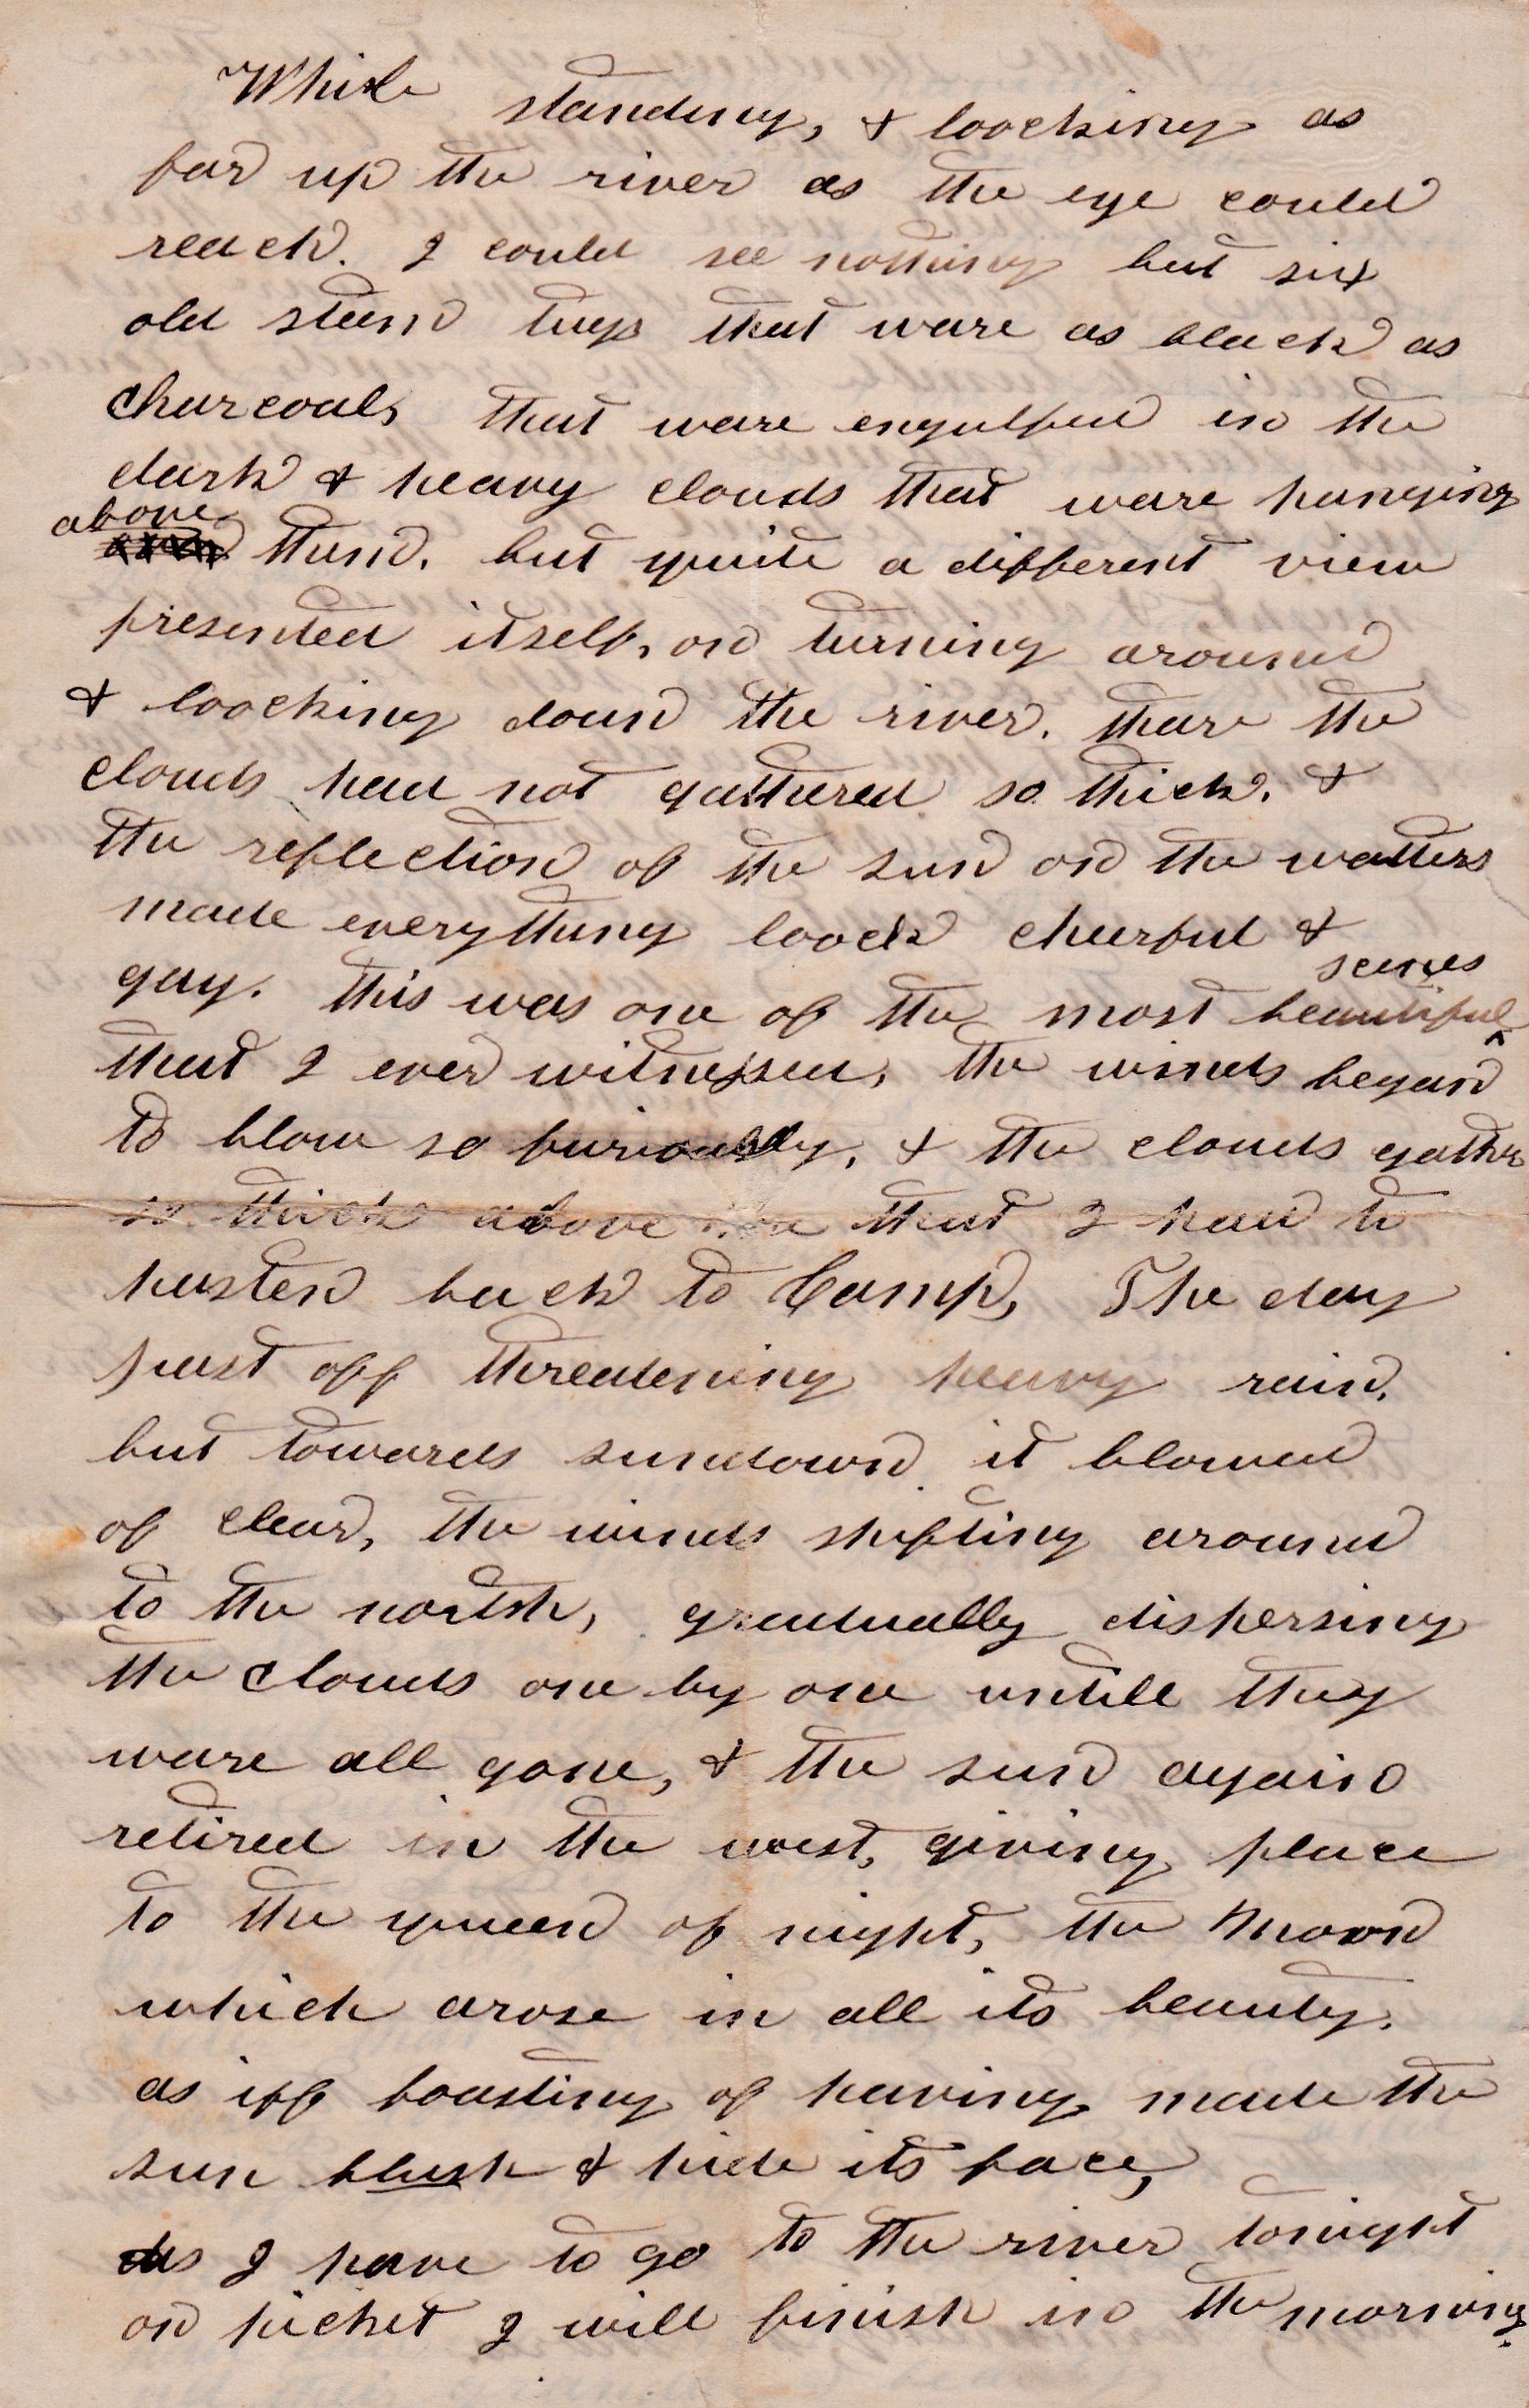 While standing, & loocking as
far up the river as the eye could
reach. I could see nothing but six
old steam tugs that ware as black as
charcoal, that ware engulfed in the
dark & heavy clouds that ware hanging
above them. but quite a different view
presented itself, on turning around
& loocking doun the river. thare the
clouds had not gatthered so thick. &
the reflection of the sun on the watters
made everything loock cheerful &
gay. this was one of the most beautiful scenes
that I ever witnessed, the winds began
to blow so furiously, & the clouds gather
so thick above me that I had to
hasten back to Camp, The day
past off threatening heavy rain.
but towards sundown it blowed
of clear, the winds shifting around
to the north, gradually dispersing
the clouds one by one untill they
ware all gone, & the sun again
retired in the west, giving place
to the queen of night, the Moon
which arose in all its beauty.
as iff boasting of having made the
sun blush & hide its face,
As I have to go to the river tonight
on picket I will finish in the morning.